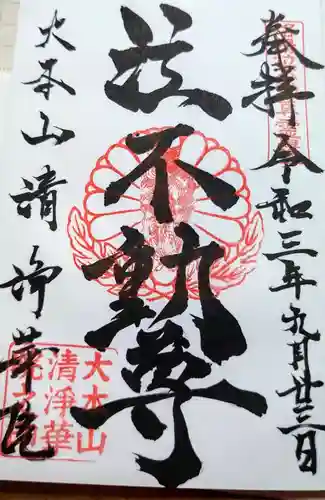 奉拝 令和三年九月廿三日
泣不動尊
大本山 清浄華院
大本山
清淨華